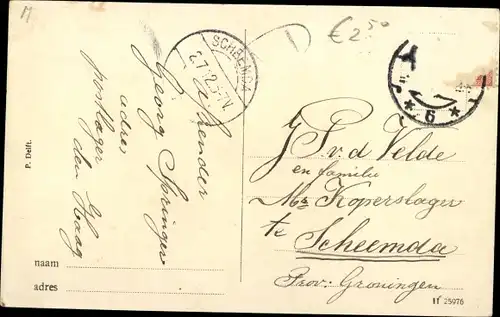 M
€ 2.50
SCHEEMDA
P. Delft.
afzender
Georg Springer
adres
postlager
den Haag
naam
adres
* 6 *
J. P. v. d. Velde
en familie
Mr Koperslager
te
Scheemda
Prov: Groningen
H 25976